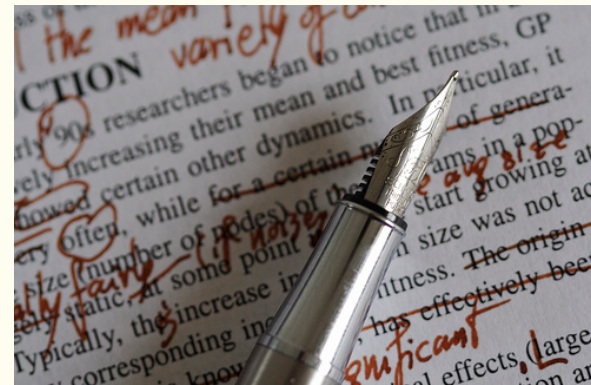 the mean
variety of
UCTION
rly '90s researchers began to notice that in
vely increasing their mean and best fitness, GP
howed certain other dynamics. In particular, it
ery often, while for a certain of genera-
size (number of nodes) of the ams in a pop-
(if noizes e avg size
ally fairly
gely static, At some point start growing at
Typically, the increase in n size was not ac
corresponding inc fitness. The origin
know , has effectively bee
gnificant
al effects, (large